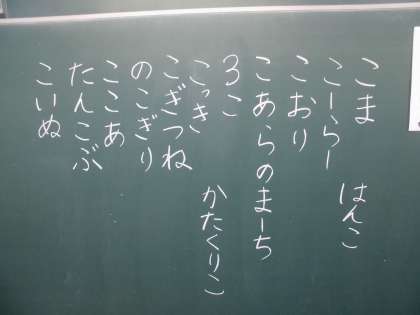 こま
こーらー
はんこ
こおり
こあらのまーち
ろこ
こっき
かたくりこ
こぎつね
のこぎり
ここあ
たんこぶ
こいぬ